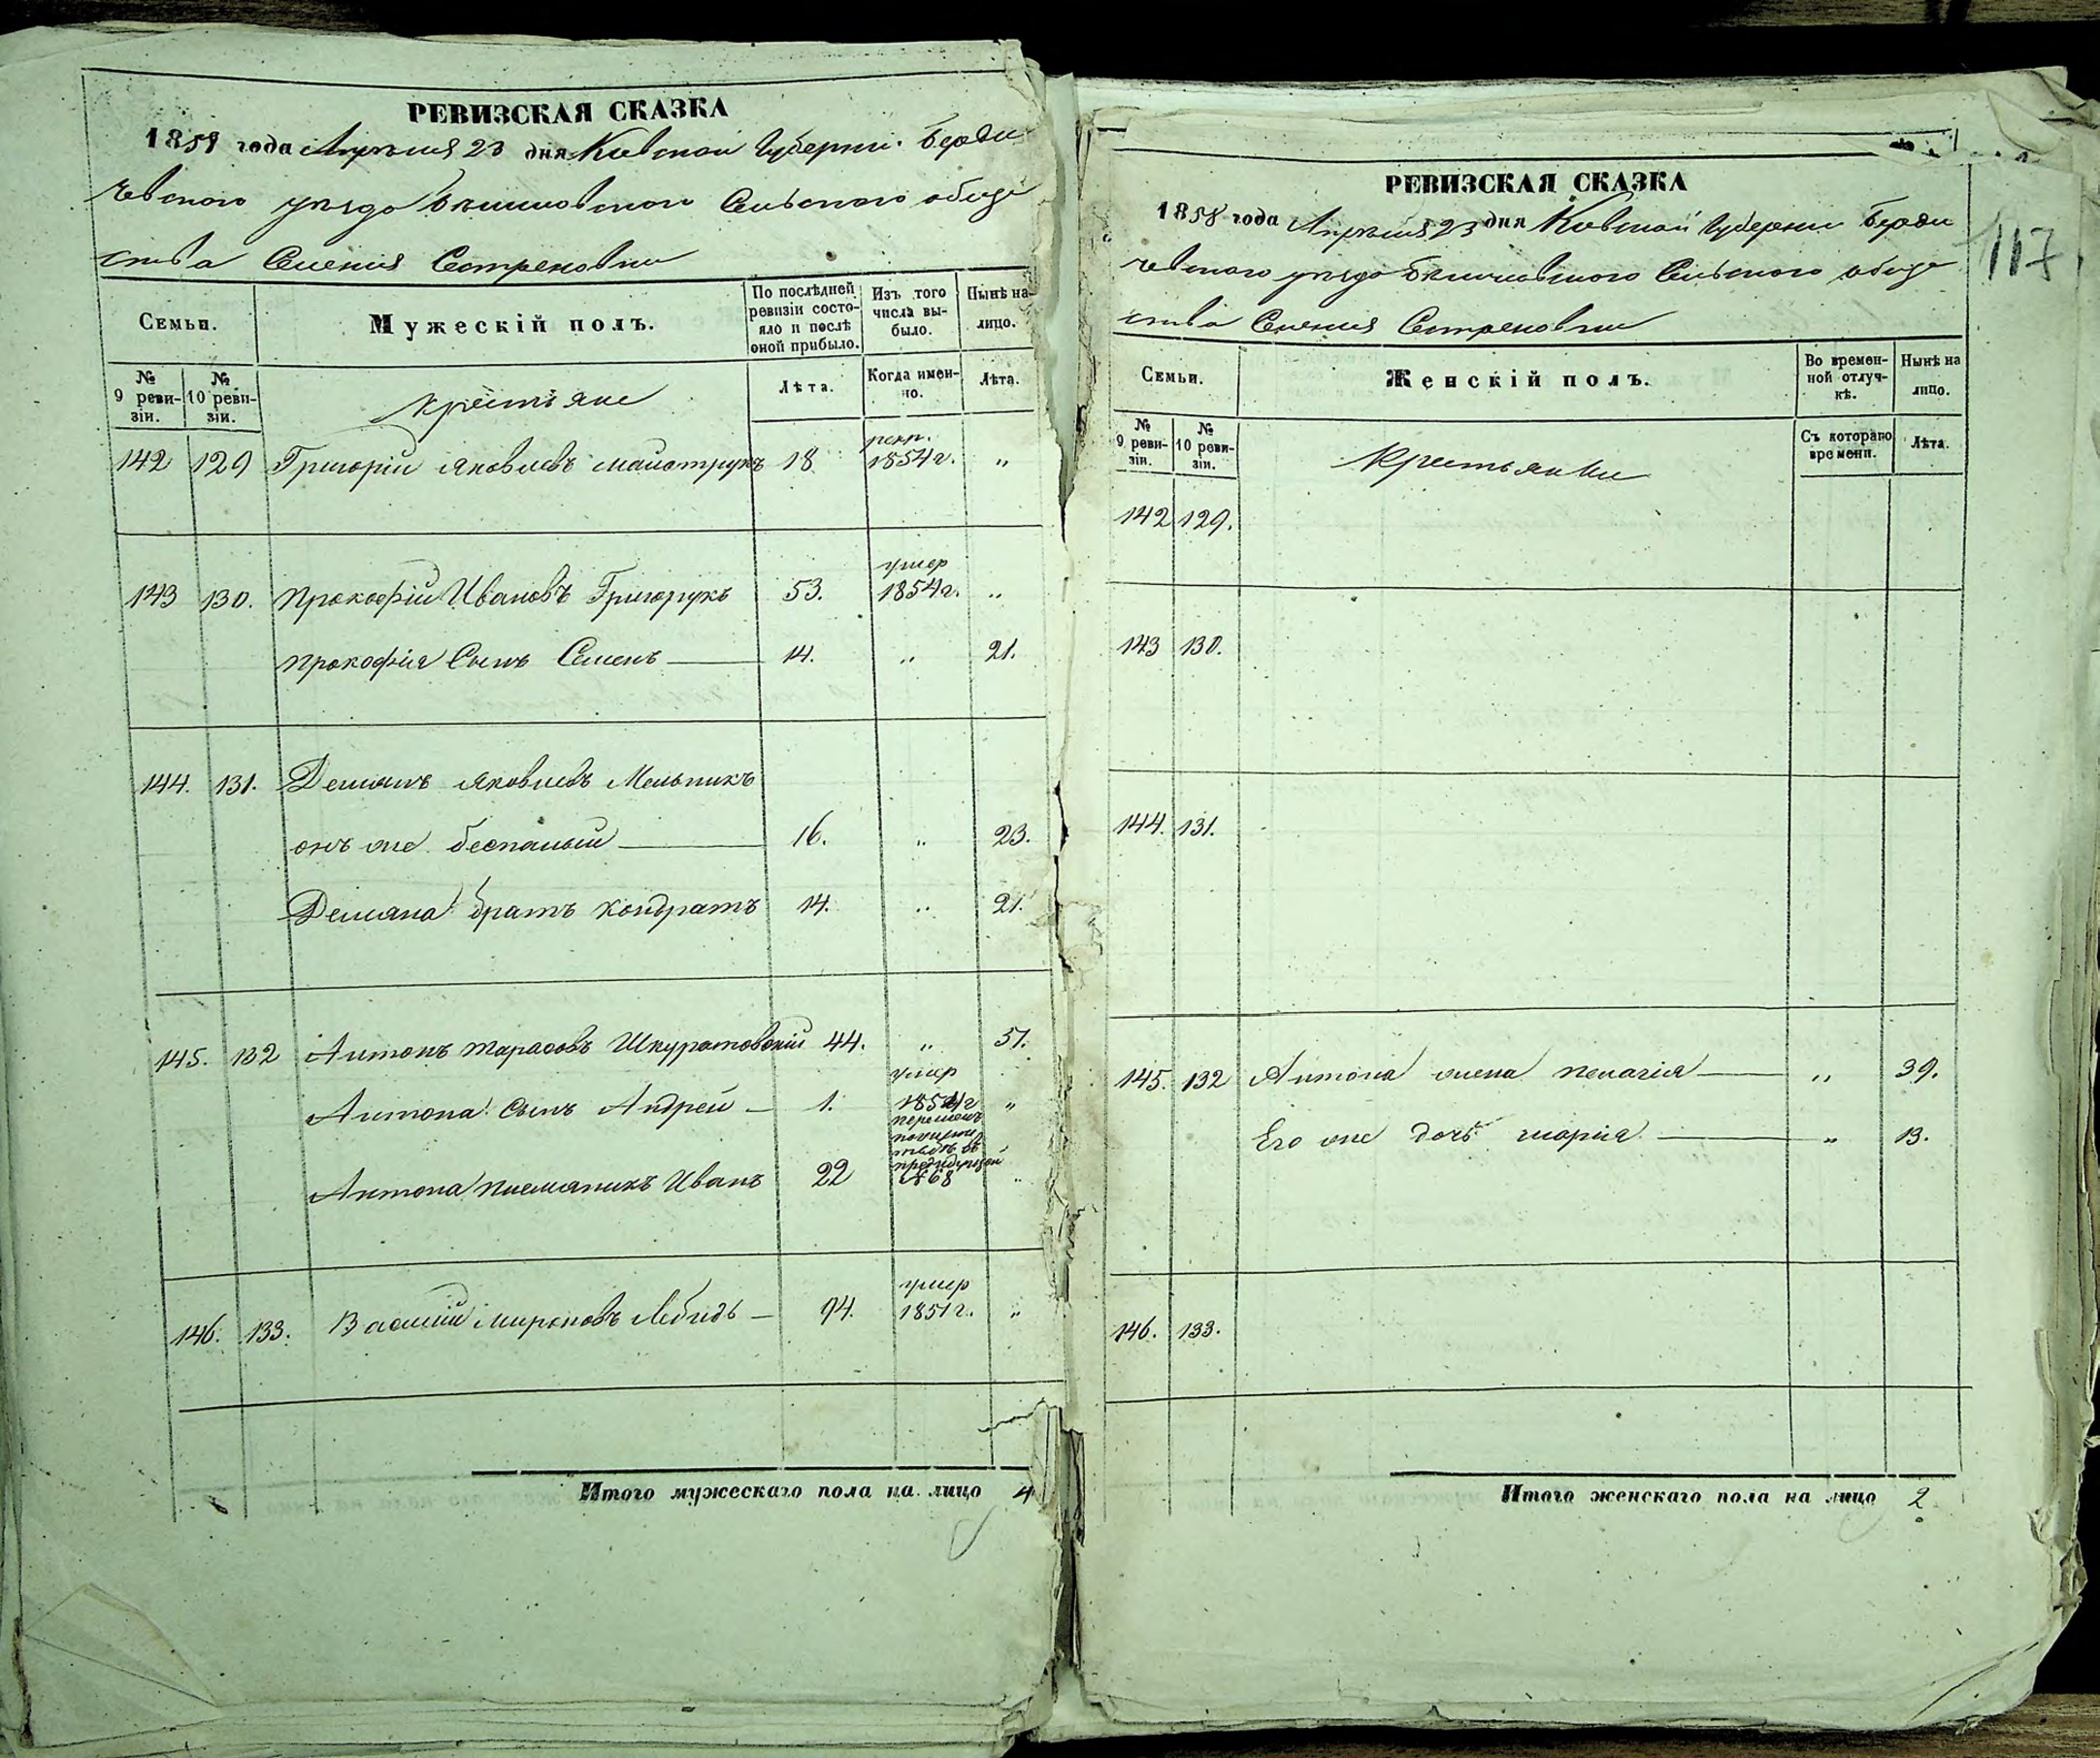 РЕВИЗСКАЯ СКАЗКА
1858 года Апреля 23 дня Киевской Губерніи Берди
чевского уезда Сельского обще
ства Селенія
Семьи.
Мужескій полъ.
По послѣдней ревизіи состо-
яло и послѣ оной прибыло.
Изъ того числа вы-
было.
Нынѣ на-
лицо.
№ 9 реви-
зіи.
№ 10 реви-
зіи.
Крестьяне
Лѣта.
Когда имен-
но.
Лѣта.
142 129 Григорій Яковлевъ 18 рекр. 1854 г. "
143 130. Прокофій Ивановъ Григорукъ 53. умер 1854 г. "
Прокофія Сынъ Семенъ — 14. " 21.
144. 131. Демянъ Яковлевъ Мельникъ
онъ же беспалый — 16. " 23.
Демяна братъ Кондратъ 14. " 21.
145. 132 Антонъ Тарасовъ Шкуратовскій 44. " 51.
Антона Сынъ Андрей — 1. умер 1854 г "
Антона племяникъ Иванъ 22 № 68 "
146. 133. Василій Мироновъ Лебидь — 94. умер 1851 г. "
Итого мужескаго пола на лицо 4
РЕВИЗСКАЯ СКАЗКА
1858 года Апреля 23 дня Киевской Губерніи Берди
чевского уезда Сельского обще
ства Селенія
117
Семьи.
Женскій полъ.
Во времен-
ной отлуч-
кѣ.
Нынѣ на
лицо.
№ 9 реви-
зіи.
№ 10 реви-
зіи.
Крестьянки
Съ котораго
времени.
Лѣта.
142 129.
143 130.
144. 131.
145. 132 Антона жена Пелагія — " 39.
Его же дочь Марія — " 13.
146. 133.
Итого женскаго пола на лицо 2